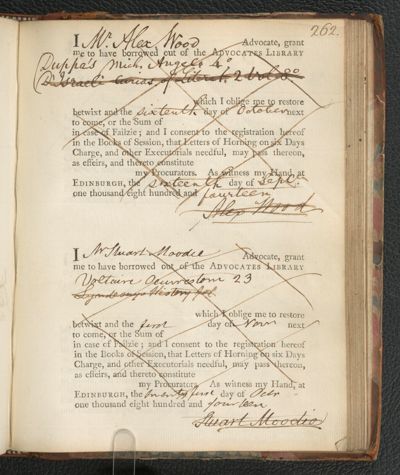 262.
I Mr. Alex Wood Advocate, grant
me to have borrowed out of the ADVOCATES LIBRARY
Duppa's Mich. Angelo 4o
D'Israeli's 2 vols 8o
which I oblige me to restore
betwixt and the sixteenth day of October next
to come, or the Sum of
in case of Failzie; and I consent to the registration hereof
in the Books of Session, that Letters of Horning on six Days
Charge, and other Executorials needful, may pass thereon,
as effeirs, and thereto constitute
my Procurators. As witness my Hand, at
EDINBURGH, the sixteenth day of Septr.
one thousand eight hundred and fourteen
Alex Wood
I Mr Stuart Moodie Advocate, grant
me to have borrowed out of the ADVOCATES LIBRARY
Voltaire Oeuvres tom 23
History fol.
which I oblige me to restore
betwixt and the first day of Novr next
to come, or the Sum of
in case of Failzie; and I consent to the registration hereof
in the Books of Session, that Letters of Horning on six Days
Charge, and other Executorials needful, may pass thereon,
as effeirs, and thereto constitute
my Procurators. As witness my Hand, at
EDINBURGH, the twenty first day of Octr
one thousand eight hundred and fourteen
Stuart Moodie